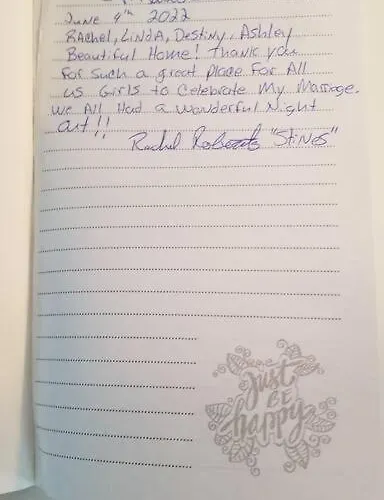 June 9th 2022
RAchel, LindA, Destiny, Ashley
Beautiful Home! Thank you
For Such a great place For All
us Girls to Celebrate My Marriage.
We All Had a Wonderful Night
Out!!
Rachel Roberts "Stines"
Just
BE
happy